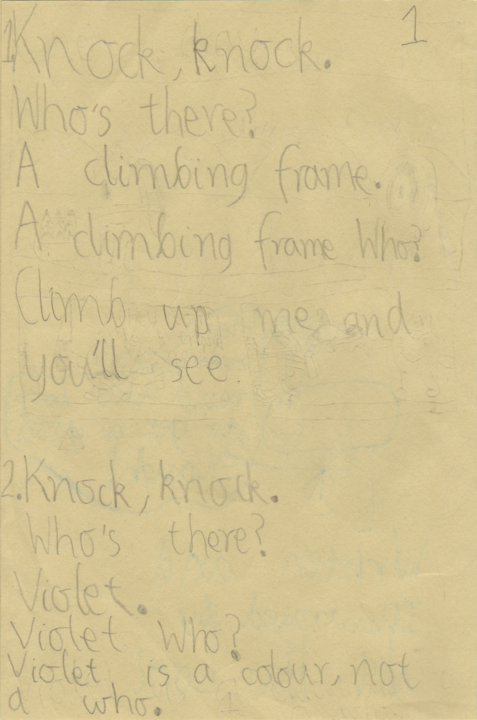 1
1. Knock, knock.
Who's there?
A climbing frame.
A climbing frame Who?
Climb up me and
you'll see.
2. Knock, knock.
Who's there?
Violet.
Violet Who?
Violet is a colour, not
a who.